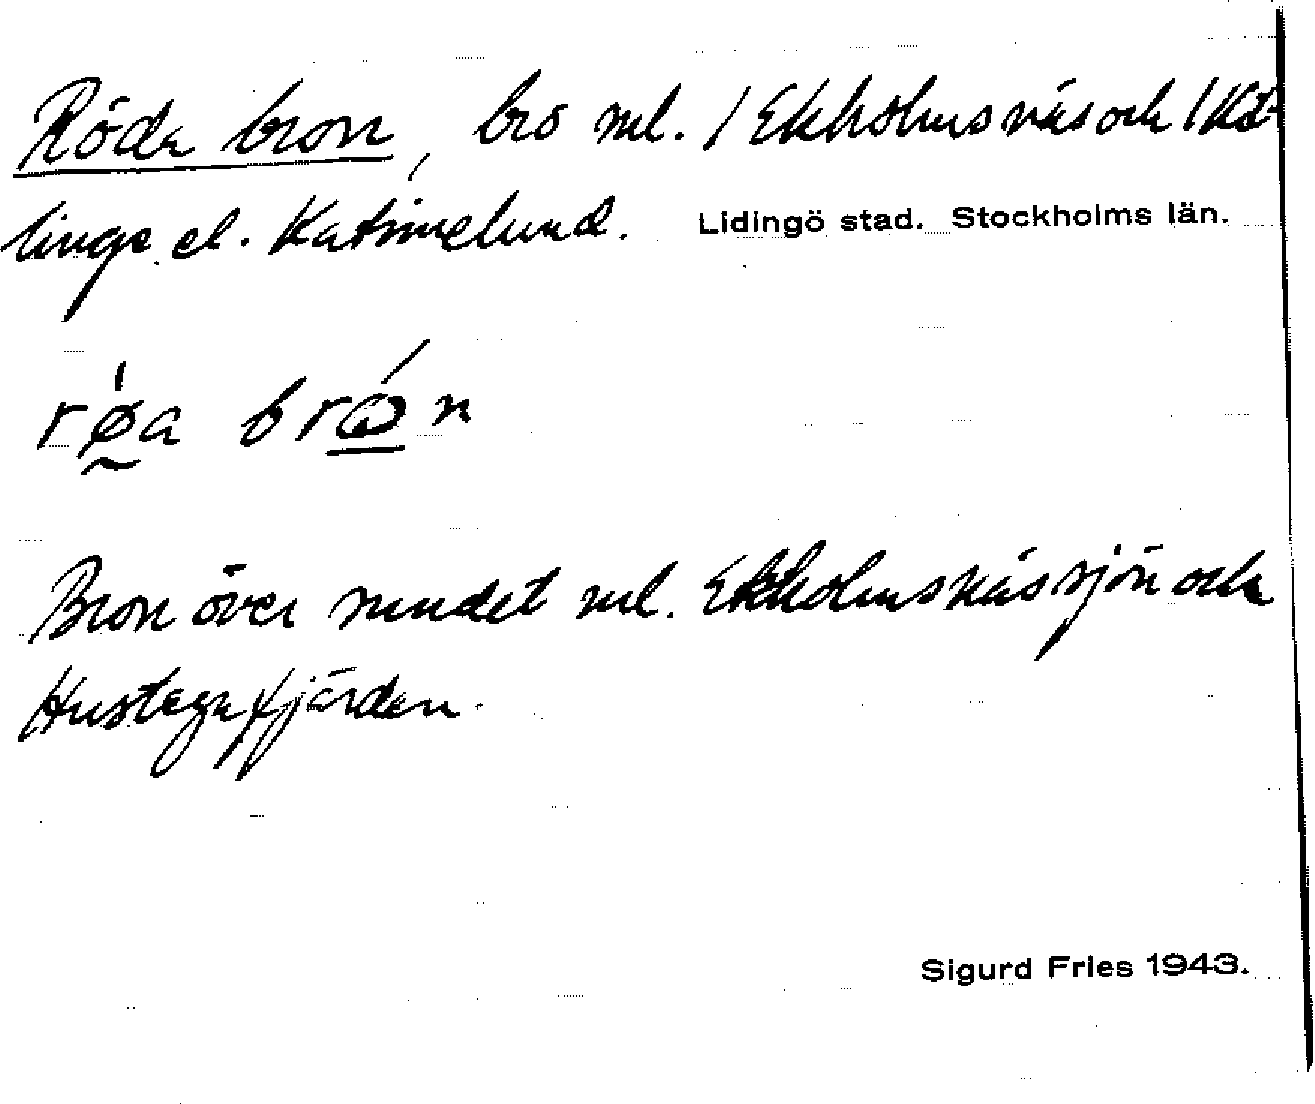 Röda bron, bro ml. 1 Ekholmsnäs och 1 Kät-
linge el. Katrinelund. Lidingö stad. Stockholms län.
rǿ̰a brón
Bron över sundet ml. Ekholmsnässjön och
Hustegafjärden.
Sigurd Fries 1943.